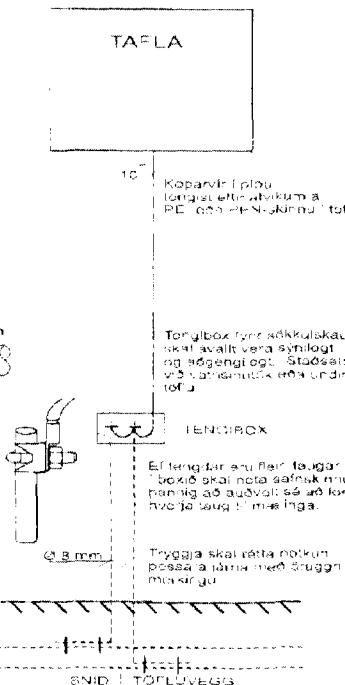 TAFLA
10
Koparvír í pípu
tengist eftir atvikum á
PE eða PEN-skinnu í töf
Tengibox fyrir sökkulskau
skal ávallt vera sýnilegt
og aðgengilegt. Staðset
við vatnsinntök eða undir
töflu
TENGIBOX
Ef tengdar eru fleiri taugar
boxið skal nota
þannig að auðvelt sé að
hverja taug til mælinga.
Ø 8 mm
Tryggja skal rétta notkun
þessara járna með öruggri
merkingu
SNIÐ Í TÖFLUVEGG